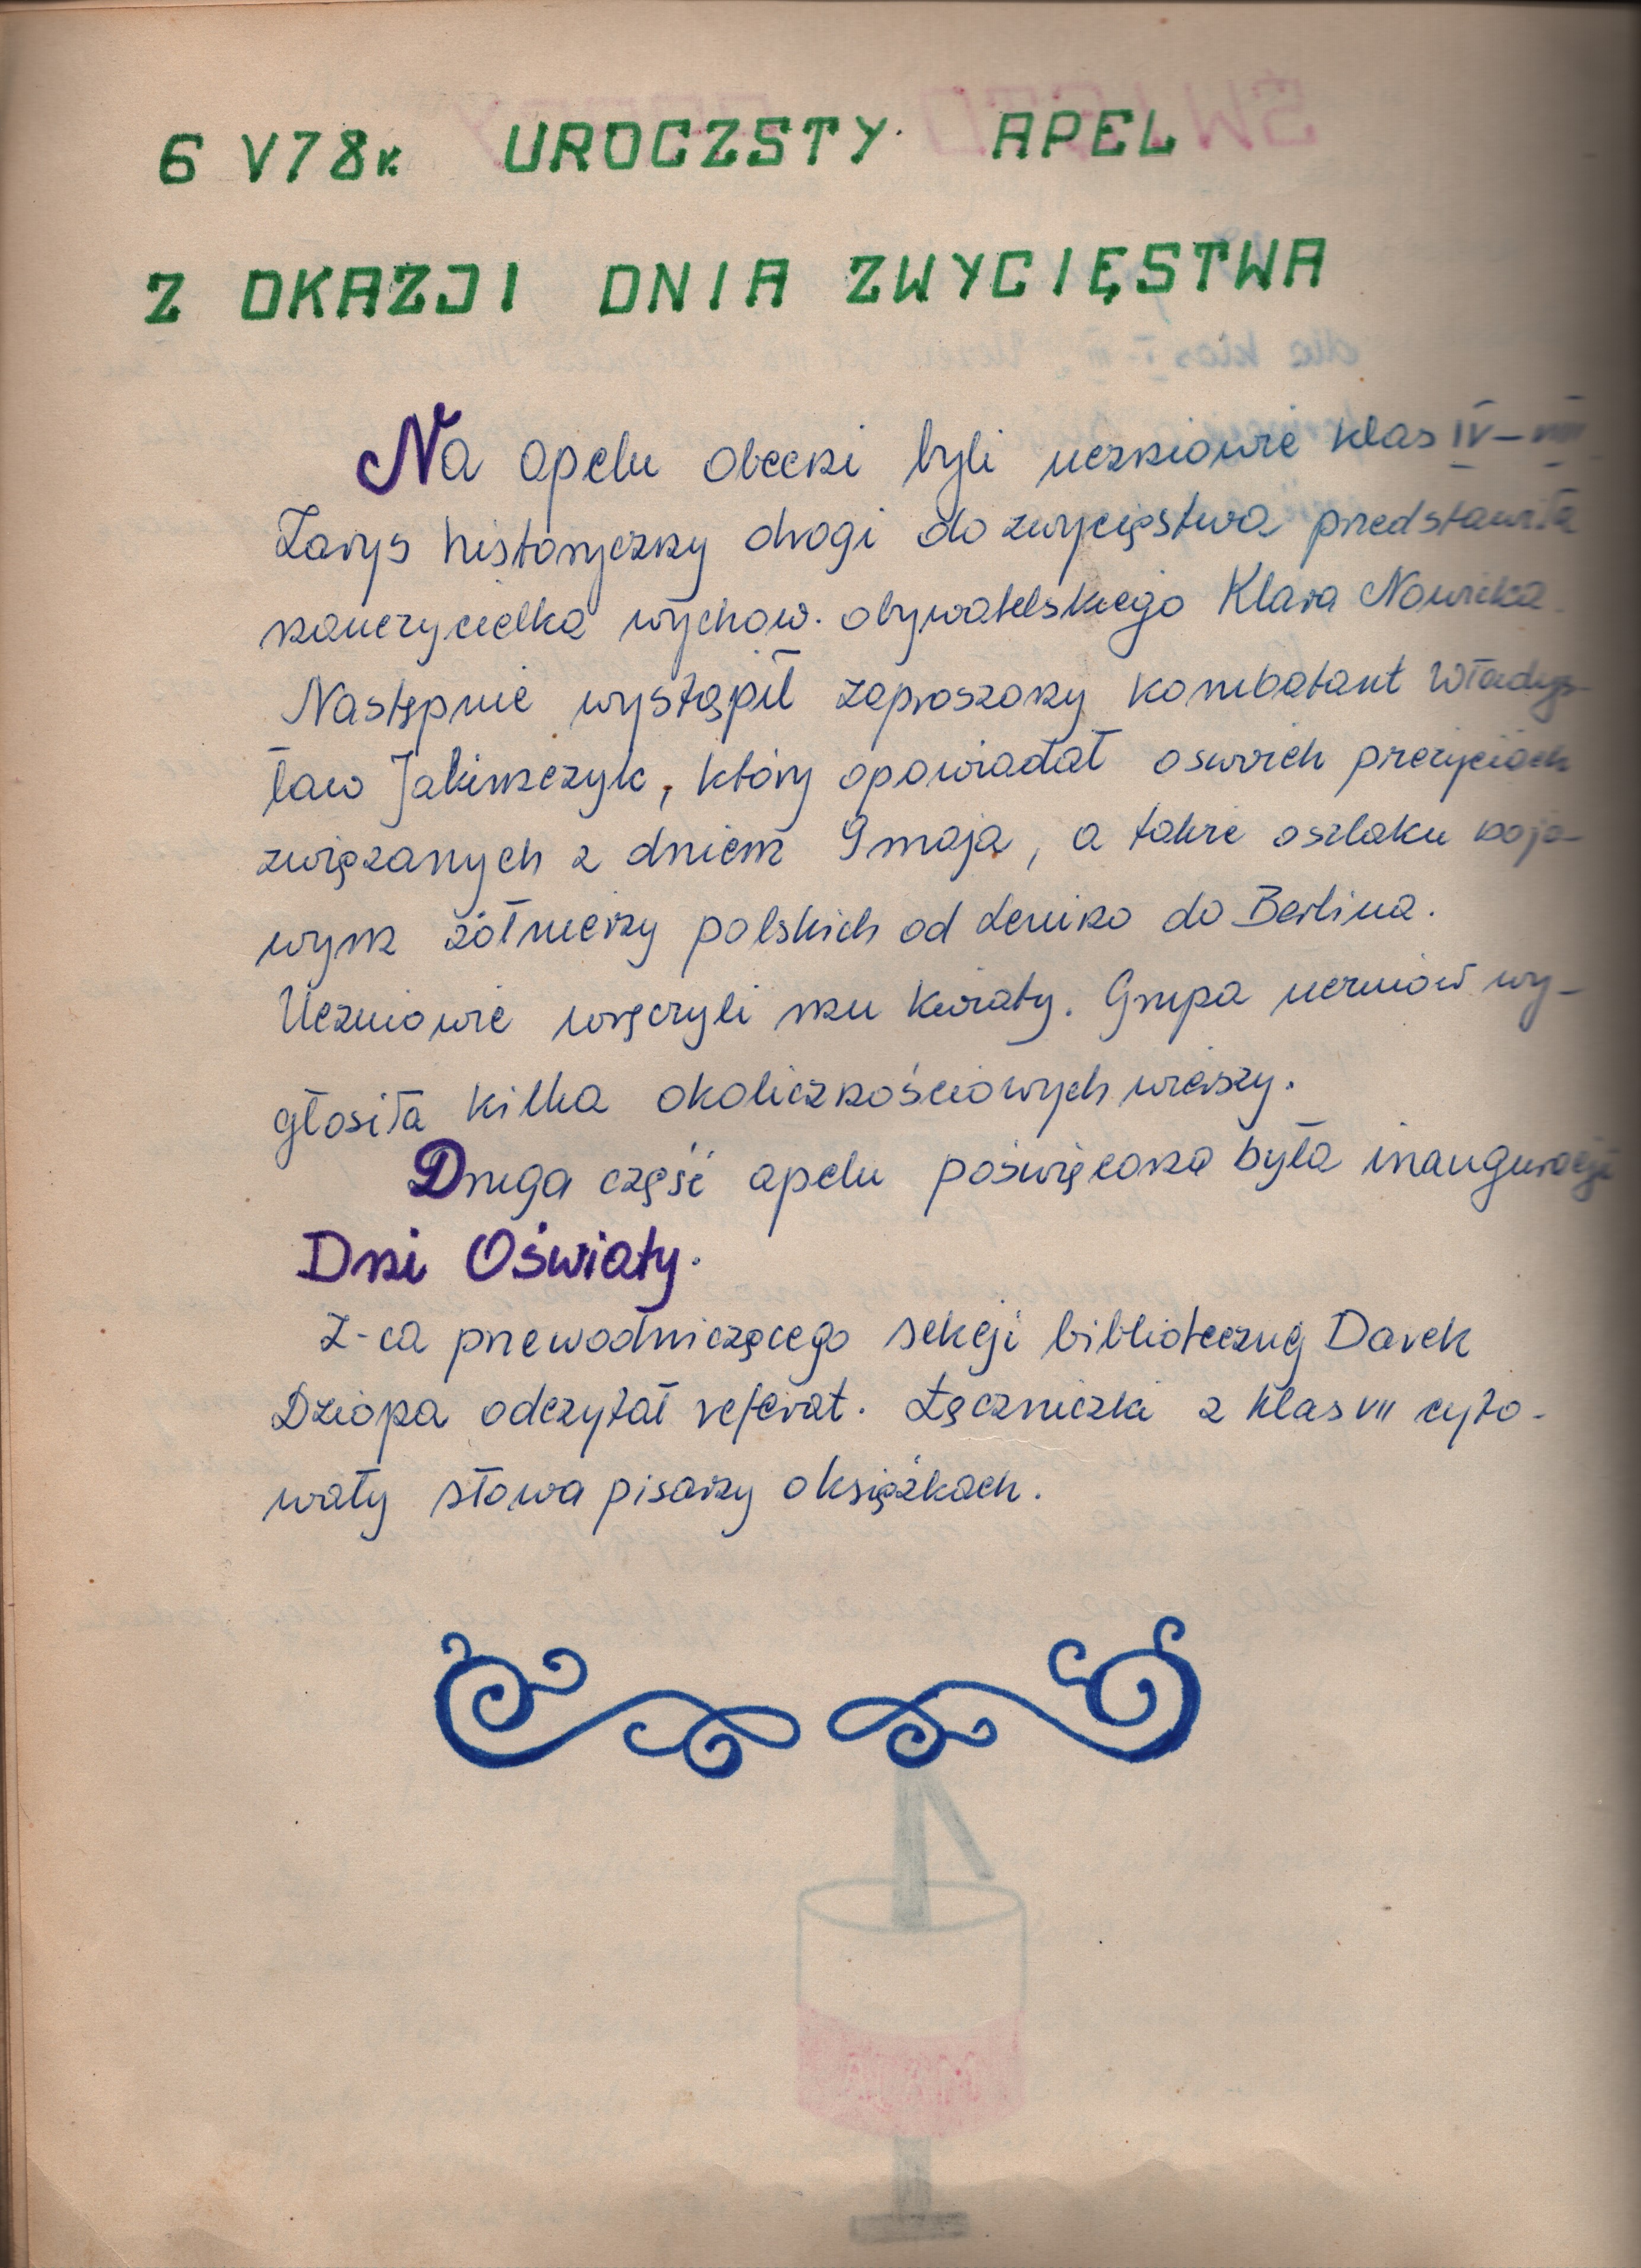 6 V 78r. UROCZSTY APEL
Z OKAZJI DNIA ZWYCIĘSTWA
Na apelu obecni byli uczniowie klas IV – VIII
Zarys historyczny drogi do zwycięstwa przedstawiła
nauczycielka wychow. obywatelskiego Klara Nowicka.
Następnie wystąpił zaproszony kombatant Władys-
ław Jakimczyk, który opowiadał o swoich przeżyciach
związanych z dniem 9 maja, a także o szlaku bojo-
wym żołnierzy polskich od Lenino do Berlina.
Uczniowie wręczyli mu kwiaty. Grupa uczniów wy-
głosiła kilka okolicznościowych wierszy.
Druga część apelu poświęcona była inauguracji
Dni Oświaty.
Z-ca przewodniczącego sekcji bibliotecznej Darek
Dziopa odczytał referat. Łączniczki z klas VII cyto-
wały słowa pisarzy o książkach.